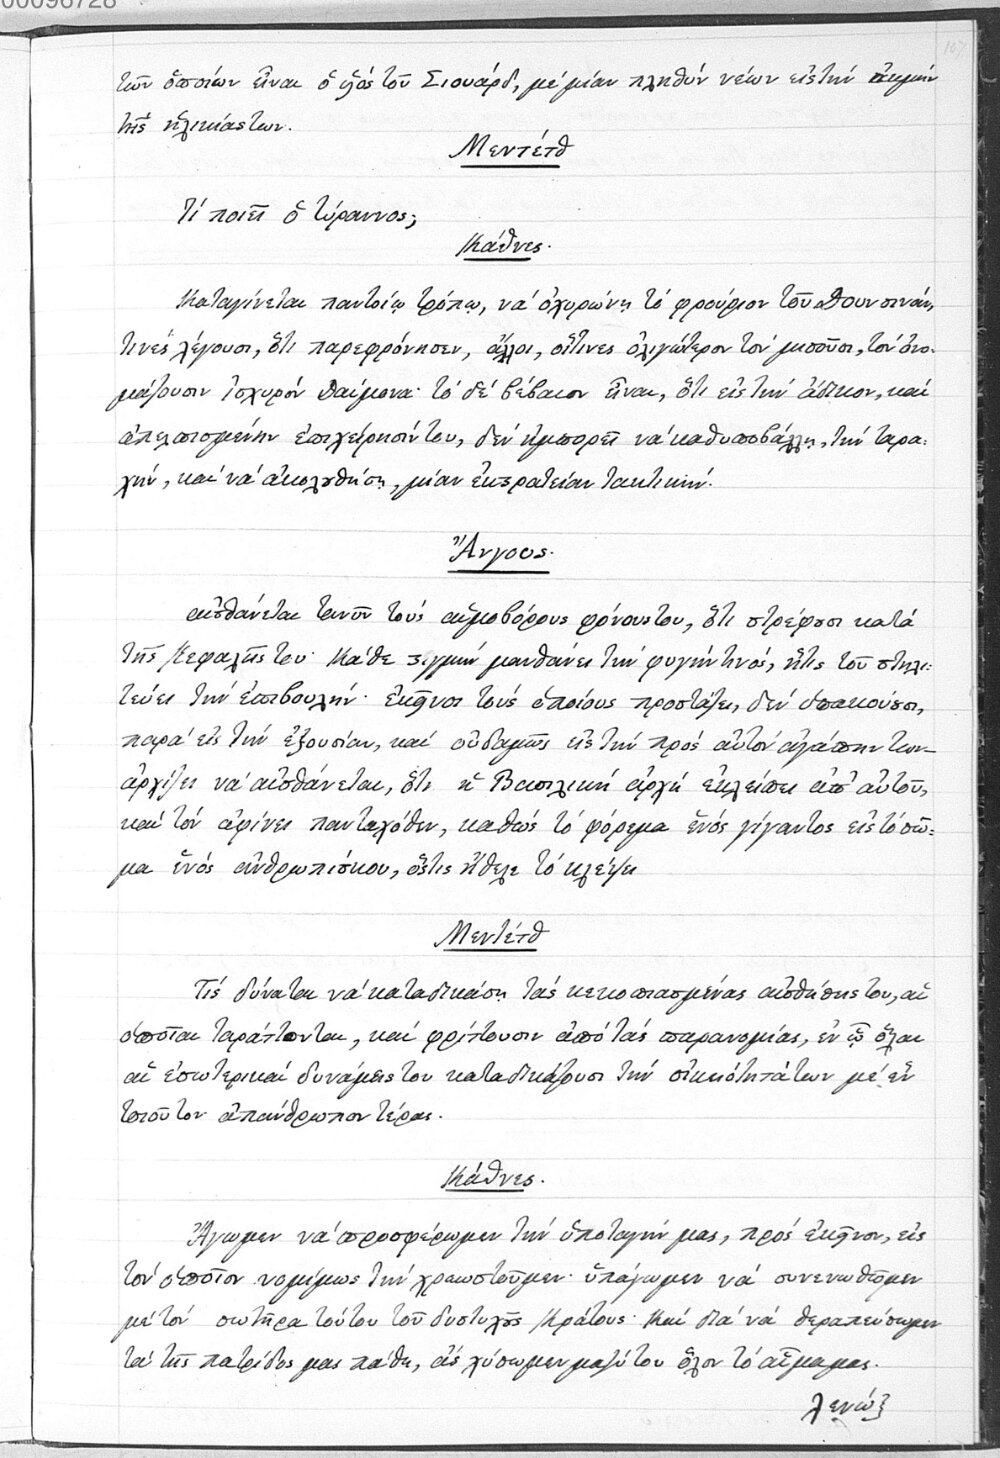 00096728
107
τῶν ὁποίων εἶναι ὁ υἱός τοῦ Σιουάρδ, μέ μίαν πληθύν νέων εἰς τήν ἀκμήν
τῆς ἡλικίας των.
Μεντέτθ
Τί ποιεῖ ὁ τύραννος;
Κάθνες.
Καταγίνεται παντοίῳ τρόπῳ, νά ὀχυρώνῃ τό φρούριον τοῦ Δουνσινάν,
τινές λέγουσι, ὅτι παρεφρόνησεν, ἄλλοι, οἵτινες ὀλιγώτερον τόν μισοῦσι, τόν ὀνο-
μάζουσιν ἰσχυρόν δαίμονα· τό δέ βέβαιον εἶναι, ὅτι εἰς τήν ἄδικον, καί
ἀπελπισμένην ἐπιχείρησίν του, δέν ἠμπορεῖ νά καθυποβάλλῃ, τήν ταρα-
χήν, καί νά ἀκολουθήσῃ, μίαν ἐκστρατείαν τακτικήν.
Ἄνγους.
αἰσθάνεται τανῦν τούς αἱμοβόρους φόνους του, ὅτι στρέφουσι κατά
τῆς κεφαλῆς του· Κάθε στιγμήν μανθάνει τήν φυγήν τινός, ἥτις τοῦ στηλι-
τεύει τήν ἐπιβουλήν· ἐκεῖνοι τούς ὁποίους προστάζει, δέν ὑπακούουσι,
παρά εἰς τήν ἐξουσίαν, καί οὐδαμῶς εἰς τήν πρός αὐτόν ἀγάπην των
ἀρχίζει νά αἰσθάνεται, ὅτι ἡ Βασιλική ἀρχή ἐκλείπει ἀπ' αὐτοῦ,
καί τόν ἀφίνει πανταχόθεν, καθώς τό φόρεμα ἑνός γίγαντος εἰς τό σῶ-
μα ἑνός ἀνθρωπίσκου, ὅστις ἤθελε τό κλέψει
Μεντέτθ
Τίς δύναται νά καταδικάσῃ τάς κεκοπιασμένας αἰσθήσεις του, αἱ
ὁποῖαι ταράττονται, καί φρίττουσιν ἀπό τάς παρανομίας, ἐν ᾧ ὅλαι
αἱ ἐσωτερικαί δυνάμεις του καταδικάζουσι τήν οἰκειότητά των μέ ἕν
τοιοῦτον ἀπάνθρωπον τέρας.
Κάθνες.
Ἄγωμεν νά προσφέρωμεν τήν ὑποταγήν μας, πρός ἐκεῖνον, εἰς
τόν ὁποῖον νομίμως τήν χρεωστοῦμεν· ὑπάγωμεν νά συνενωθῶμεν
μέ τόν σωτῆρα τούτου τοῦ δυστυχοῦς Κράτους· Καί διά νά θεραπεύσωμεν
τά τῆς πατρίδος μας πάθη, ἄς χύσωμεν μαζύ του ὅλον τό αἷμα μας.